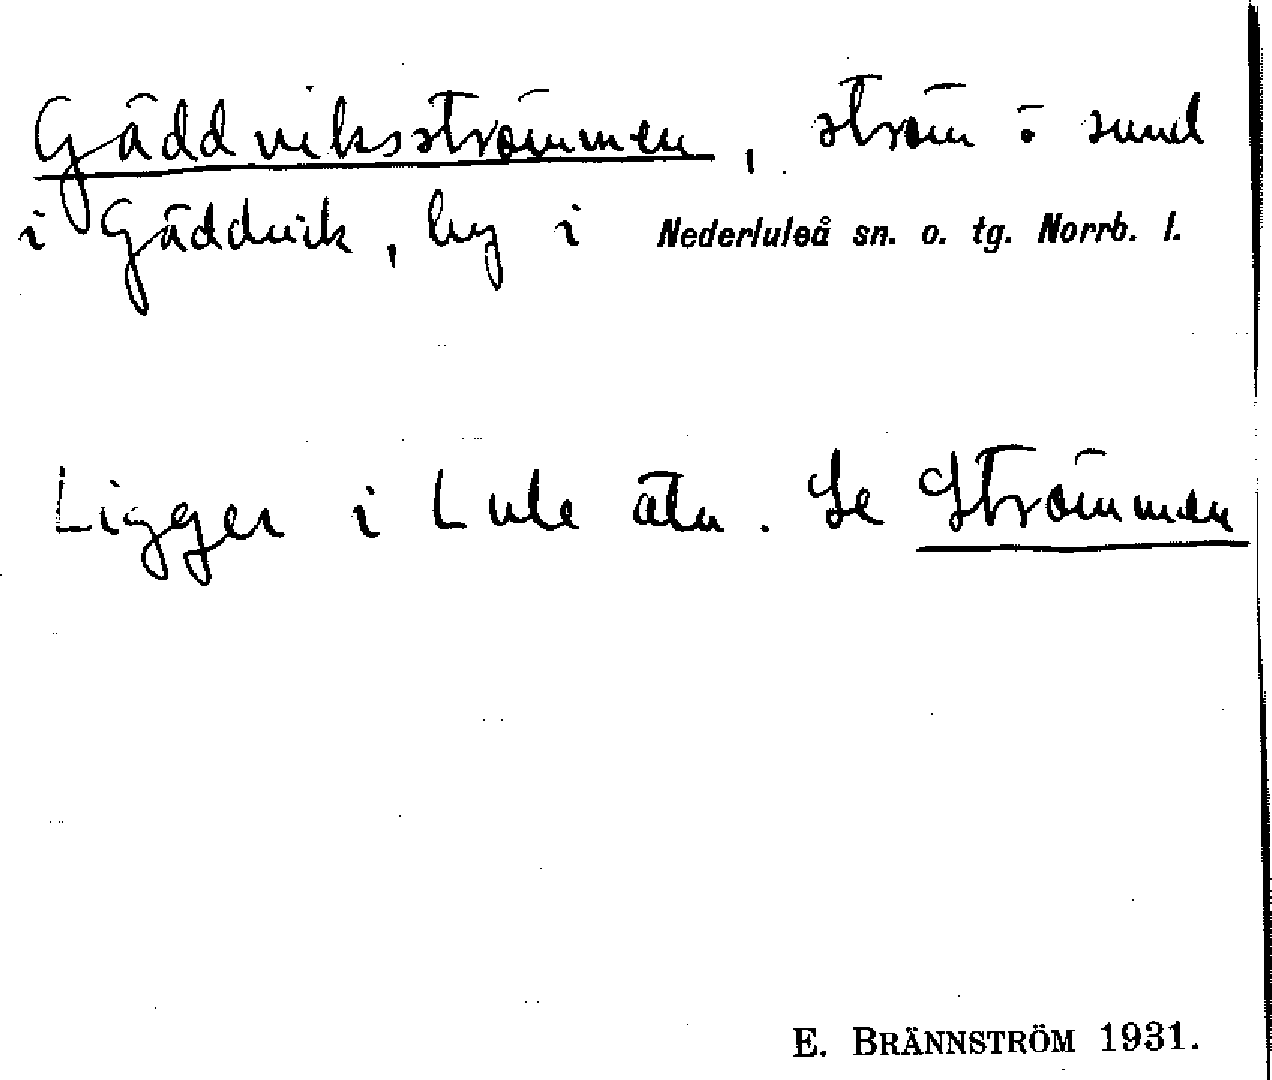 Gäddviksströmmen, ström o sund
i Gäddvik, by i Nederluleå sn. o. tg. Norrb. l.
Ligger i Lule älv. Se Strömmen
E. BRÄNNSTRÖM 1931.